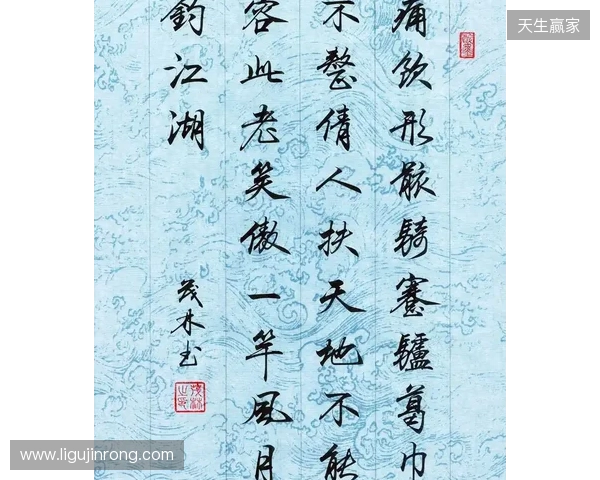 天生赢家
痛饮形骸騎蹇驢葛巾
不整倩人扶天地不能
容此老笑傲一竿風月
釣江湖
茂林书
www.ligujinrong.com